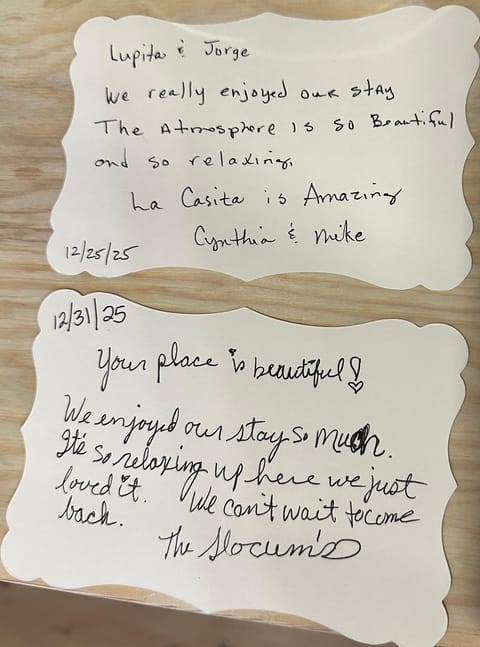 Lupita & Jorge
We really enjoyed our stay
The Atmosphere is so Beautiful
and so relaxing.
La Casita is Amazing
Cynthia & Mike
12/25/25
12/31/25
Your place is beautiful!
We enjoyed our stay so much.
It's so relaxing up here we just
loved it. We can't wait to come
back.
The Slocum's